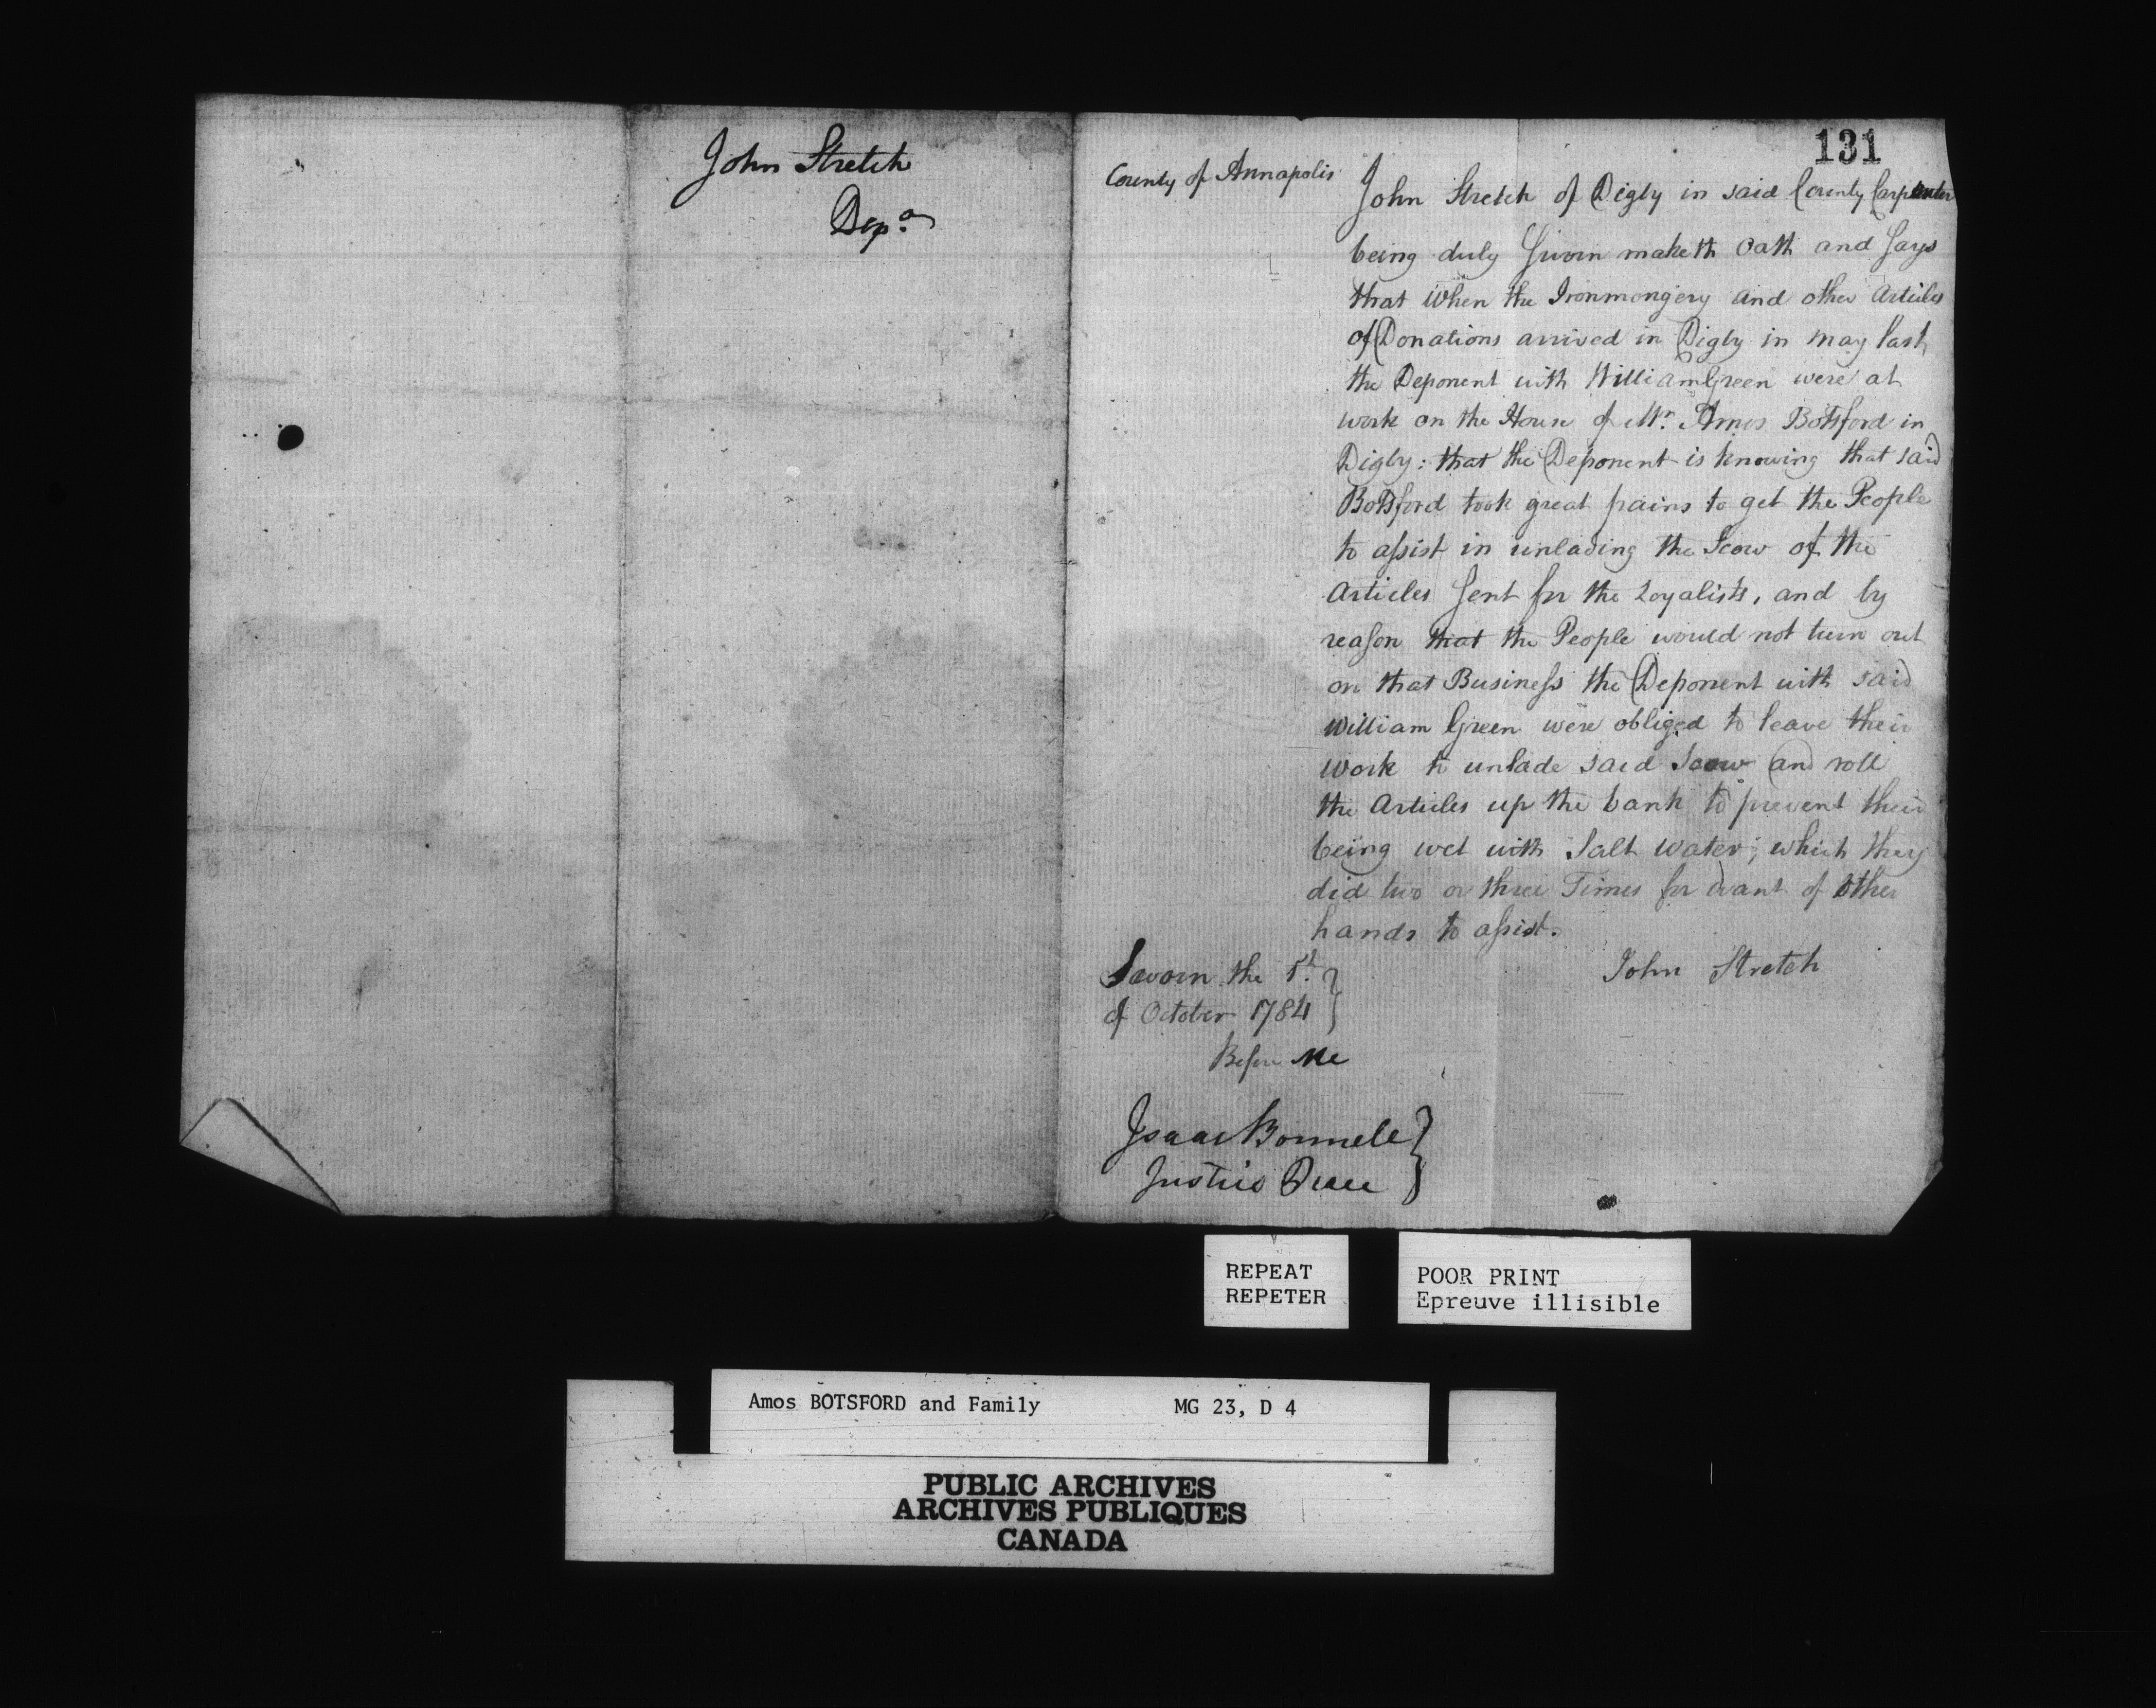 John Stretch
Depᵒⁿ
131
County of Annapolis
John Stretch of Digby in said County Carpenter
being duly Sworn maketh Oath and Says
that When the Ironmongery and other Articles
of Donations arrived in Digby in May last,
the Deponent with William Green were at
work on the House of Mr. Amos Botsford in
Digby: that the Deponent is knowing that said
Botsford took great pains to get the People
to assist in unlading the Scow of the
Articles Sent for the Loyalists, and by
reason that the People would not turn out
on that Business the Deponent with said
William Green were obliged to leave their
Work to unlade said Scow and roll
the Articles up the bank to prevent their
being wet with Salt Water; which they
did two or three Times for want of other
hands to assist.
Sworn the 1st.
of October 1784
Before Me
John Stretch
Isaac Bonnell
Justice Peace
REPEAT
REPETER
POOR PRINT
Epreuve illisible
Amos BOTSFORD and Family MG 23, D 4
PUBLIC ARCHIVES
ARCHIVES PUBLIQUES
CANADA